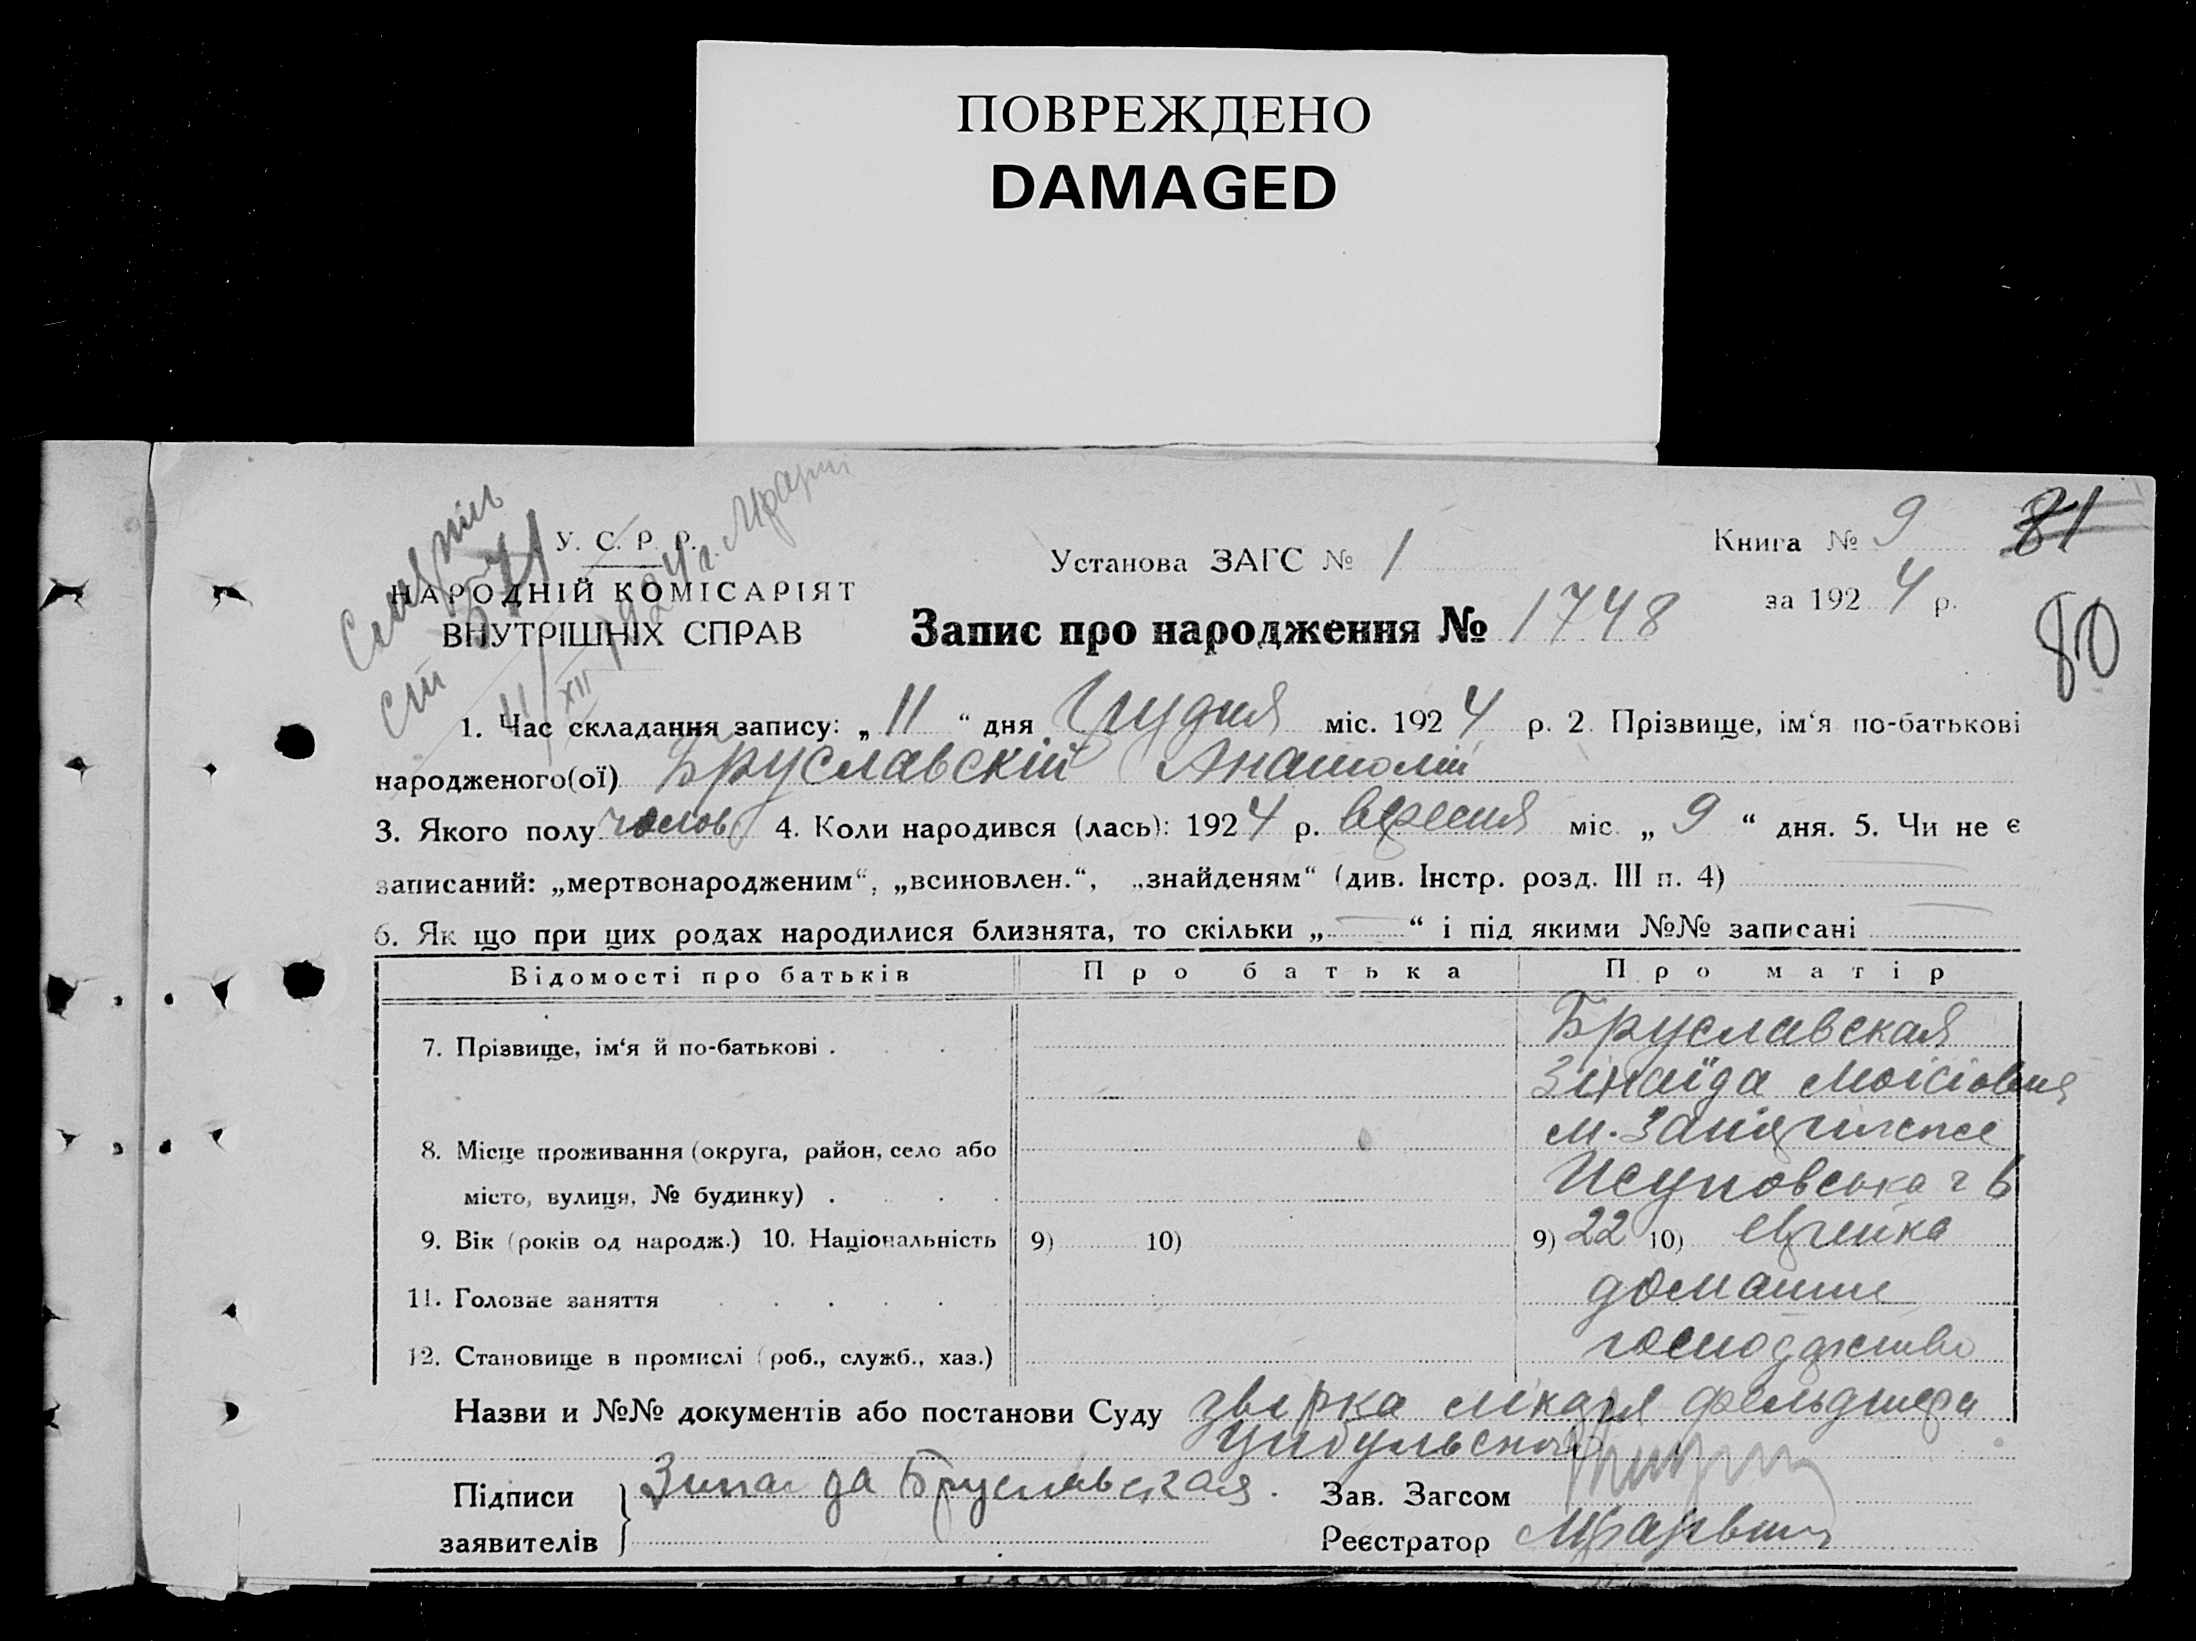 ПОВРЕЖДЕНО
DAMAGED
У. С. Р. Р.
НАРОДНІЙ КОМІСАРІЯТ
ВНУТРІШНІХ СПРАВ
11/XII 1924 г.
Установа ЗАГС № 1
Запис про народження № 1748
Книга № 9
за 1924 р.
81
80
1. Час складання запису: „ 11 “ дня Грудня міс. 1924 р. 2. Прізвище, ім‘я по-батькові
народженого(ої) Бруславскій Анатолій
3. Якого полу чолов 4. Коли народився (лась): 1924 р. вересня міс. „ 9 “ дня. 5. Чи не є
записаний: „мертвонародженим“, „всиновлен.“, „знайденям“ (див. Інстр. розд. III п. 4)
6. Як що при цих родах народилися близнята, то скільки „ — “ і під якими №№ записані
Відомості про батьків Про батька Про матір
7. Прізвище, ім‘я й по-батькові . Бруславская
Зінаїда Моісіовна
8. Місце проживання (округа, район, село або м.
місто, вулиця, № будинку) .
9. Вік (років од народж.) 10. Національність 9) 10) 9) 22 10) єврейка
11. Головне заняття домашнє
12. Становище в промислі (роб., служб., хаз.) господарство
Назви и №№ документів або постанови Суду лікаря фельдшера
Цибульского
Підписи
заявителів
Зинаида Бруславская.
Зав. Загсом
Реєстратор